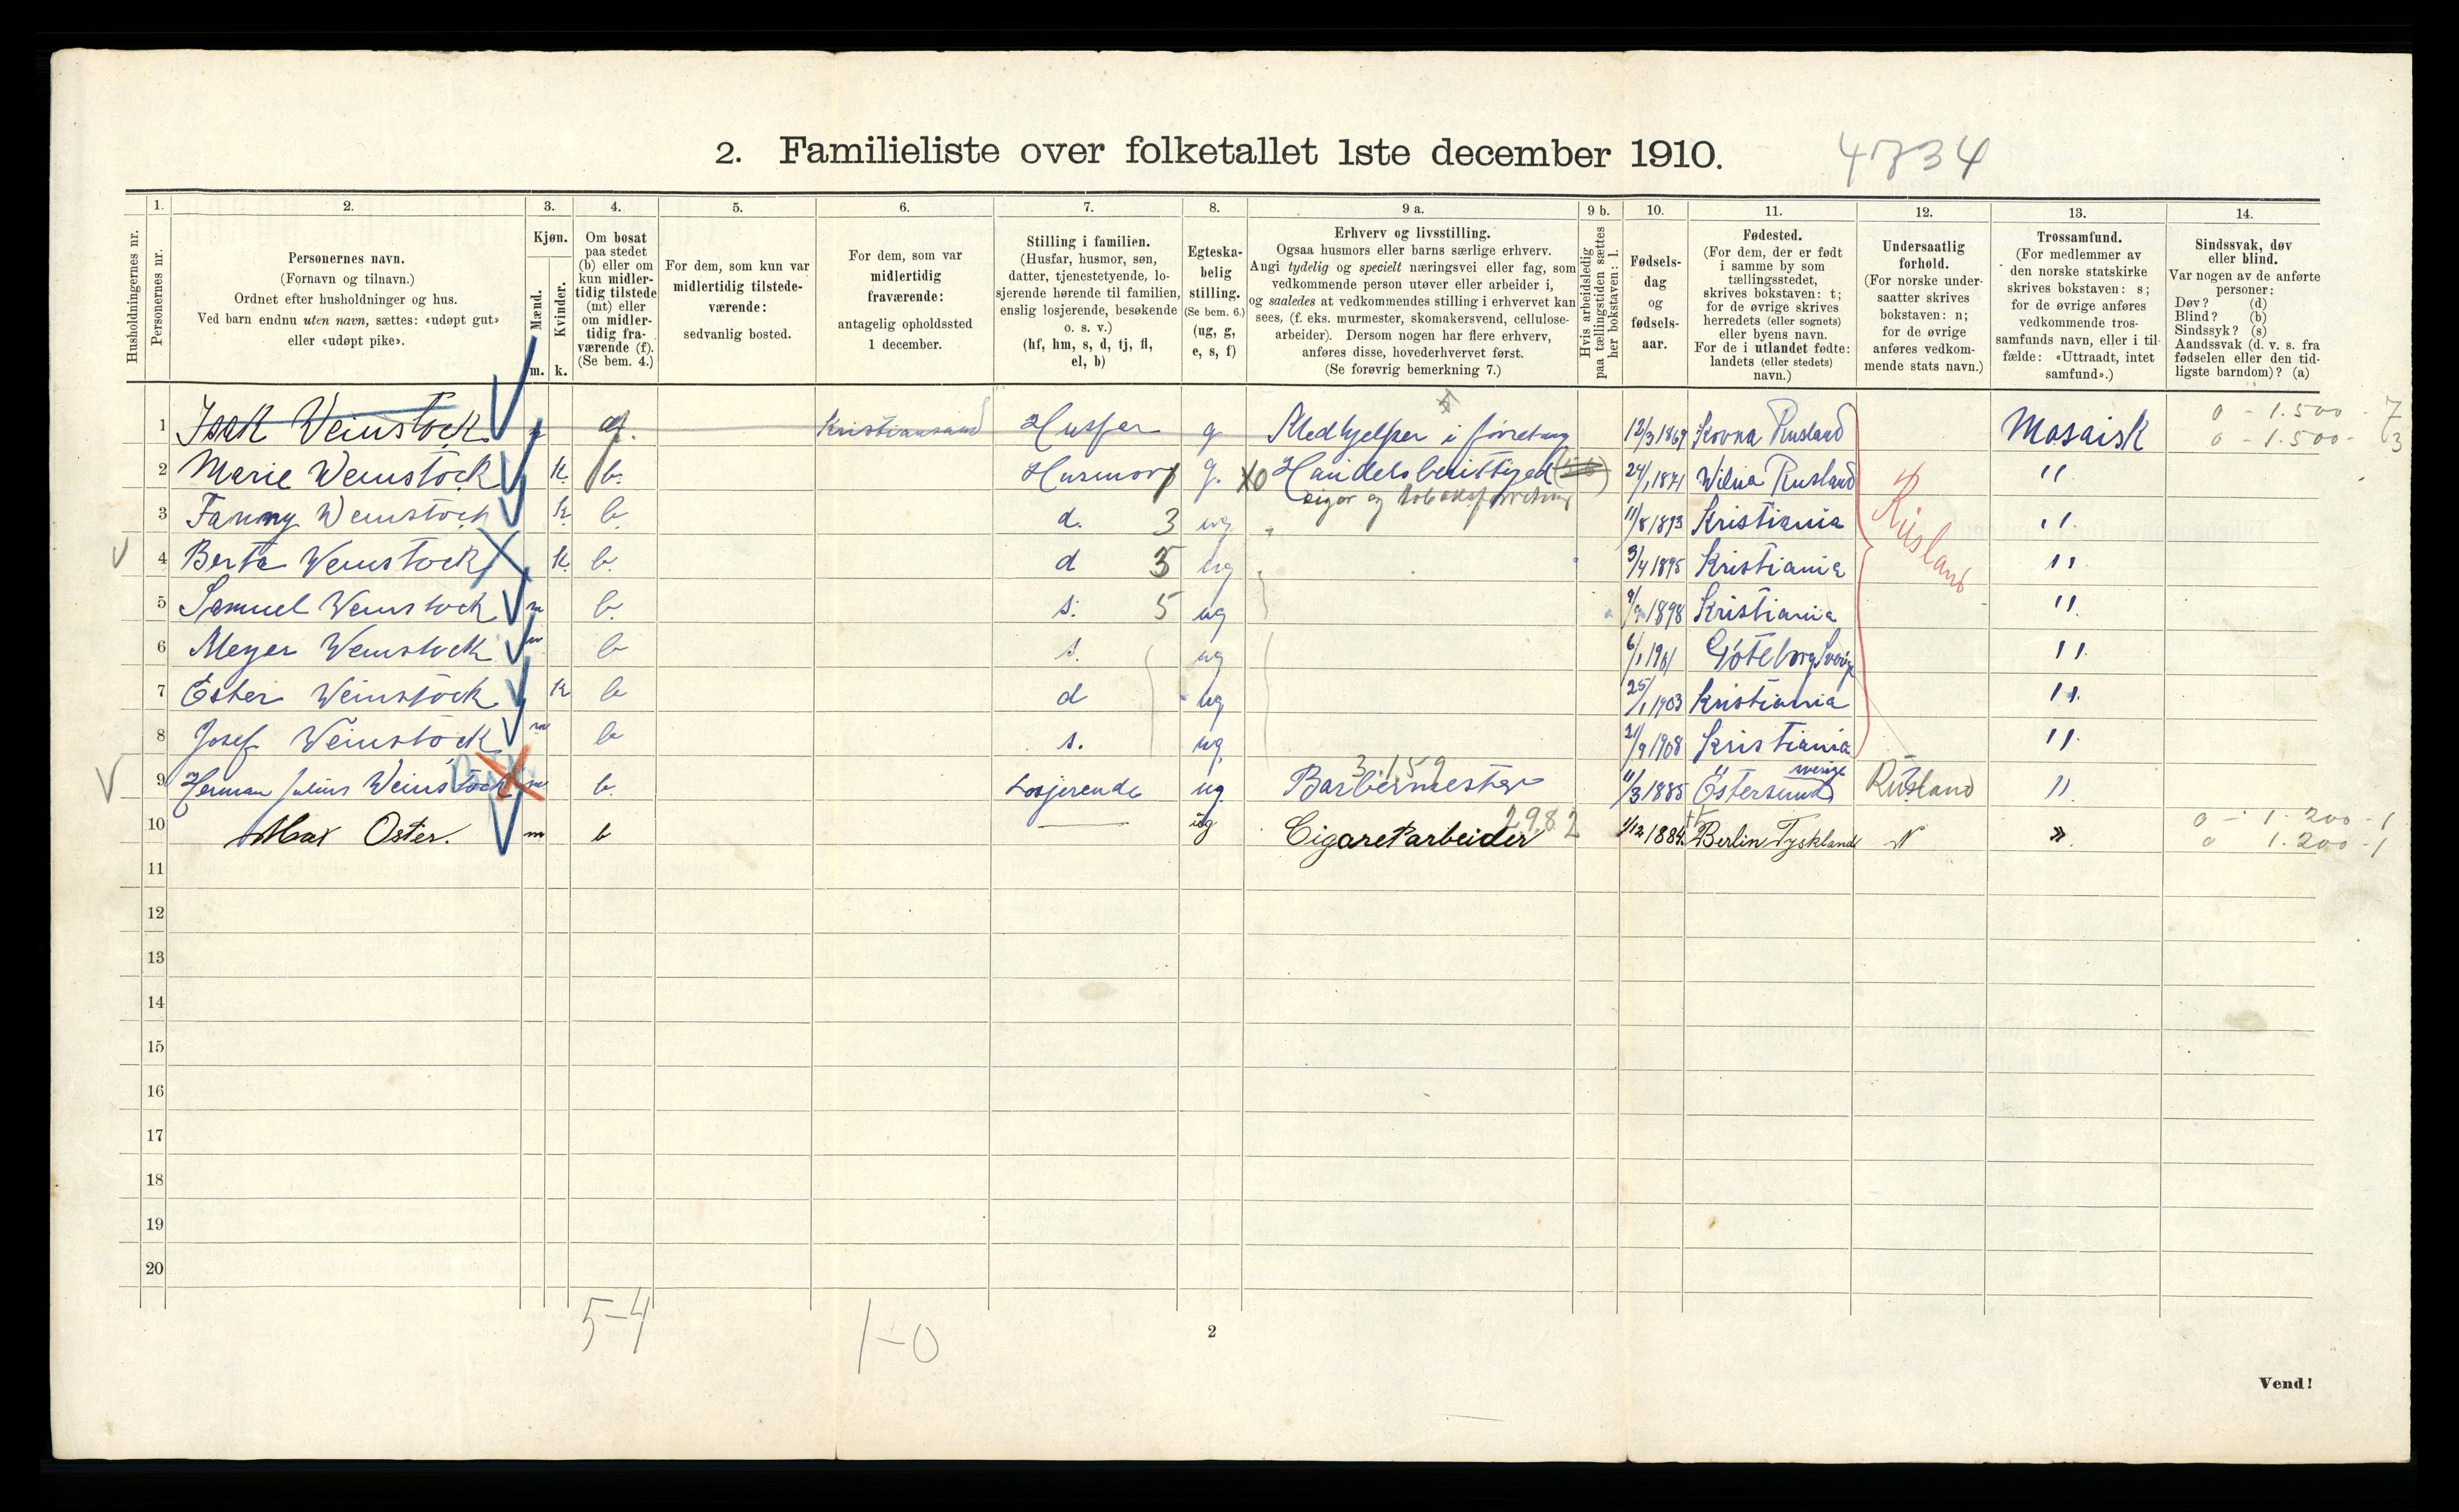 2. Familieliste over folketallet 1ste december 1910.
4734
1. 2. 3. 4. 5. 6. 7. 8. 9 a. 9 b. 10. 11. 12. 13. 14.
Husholdningernes nr.
Personernes nr.
Personernes navn.
(Fornavn og tilnavn.)
Ordnet efter husholdninger og hus.
Ved barn endnu uten navn, sættes: «udøpt gut»
eller «udøpt pike».
Kjøn.
Mænd.
Kvinder.
m. k.
Om bosat
paa stedet
(b) eller om
kun midler-
tidig tilstede
(mt) eller
om midler-
tidig fra-
værende (f).
(Se bem. 4.)
For dem, som kun var
midlertidig tilstede-
værende:
sedvanlig bosted.
For dem, som var
midlertidig
fraværende:
antagelig opholdssted
1 december.
Stilling i familien.
(Husfar, husmor, søn,
datter, tjenestetyende, lo-
sjerende hørende til familien,
enslig losjerende, besøkende
o. s. v.)
(hf, hm, s, d, tj, fl,
el, b)
Egteska-
belig
stilling.
(Se bem. 6.)
(ug, g,
e, s, f)
Erhverv og livsstilling.
Ogsaa husmors eller barns særlige erhverv.
Angi tydelig og specielt næringsvei eller fag, som
vedkommende person utøver eller arbeider i,
og saaledes at vedkommendes stilling i erhvervet kan
sees, (f. eks. murmester, skomakersvend, cellulose-
arbeider). Dersom nogen har flere erhverv,
anføres disse, hovederhvervet først.
(Se forøvrig bemerkning 7.)
Hvis arbeidsledig
paa tællingstiden sættes
her bokstaven: l.
Fødsels-
dag
og
fødsels-
aar.
Fødested.
(For dem, der er født
i samme by som
tællingsstedet,
skrives bokstaven: t;
for de øvrige skrives
herredets (eller sognets)
eller byens navn.
For de i utlandet fødte:
landets (eller stedets)
navn.)
Undersaatlig
forhold.
(For norske under-
saatter skrives
bokstaven: n;
for de øvrige
anføres vedkom-
mende stats navn.)
Trossamfund.
(For medlemmer av
den norske statskirke
skrives bokstaven: s;
for de øvrige anføres
vedkommende tros-
samfunds navn, eller i til-
fælde: «Uttraadt, intet
samfund».)
Sindssvak, døv
eller blind.
Var nogen av de anførte
personer:
Døv? (d)
Blind? (b)
Sindssyk? (s)
Aandssvak (d. v. s. fra
fødselen eller den tid-
ligste barndom)? (a)
1 Isak Weinstock f. Kristiansand Husfar g Medhjelper i forretning 12/3 1869 Kovna Rusland Mosaisk 0 - 1.500 - 7
0 - 1.500 - 3
2 Marie Weinstock k. b. Husmor g. Handelsberettiged 24/1 1871 Wilna Rusland "
cigar og tobaksforretning
3 Fanny Weinstock k. b. d. 3 ug 11/8 1893 Kristiania "
Rusland
4 Berta Weinstock k. b. d 3 ug 3/4 1895 Kristiania "
5 Samuel Weinstock m b. s. 5 ug 1898 Kristiania "
6 Meyer Weinstock m b s. ug 6/1 1901 Göteborg Sverige "
7 Ester Weinstock k b d ug 25/1 1903 Kristiania "
8 Josef Weinstock m b s. ug. 21/9 1908 Kristiania "
3.159
9 Herman Julius Weinstock m b. Losjerende ug. Barbermester 11/3 1885 Östersund sverige Rusland "
10 Max Oster. m b — ug Cigaretarbeider 2982 1/12 1884. Berlin Tyskland N » 0 - 1.200 - 1
0 1.200 - 1
11
12
13
14
15
16
17
18
19
20
5-4
1-0
2
Vend!